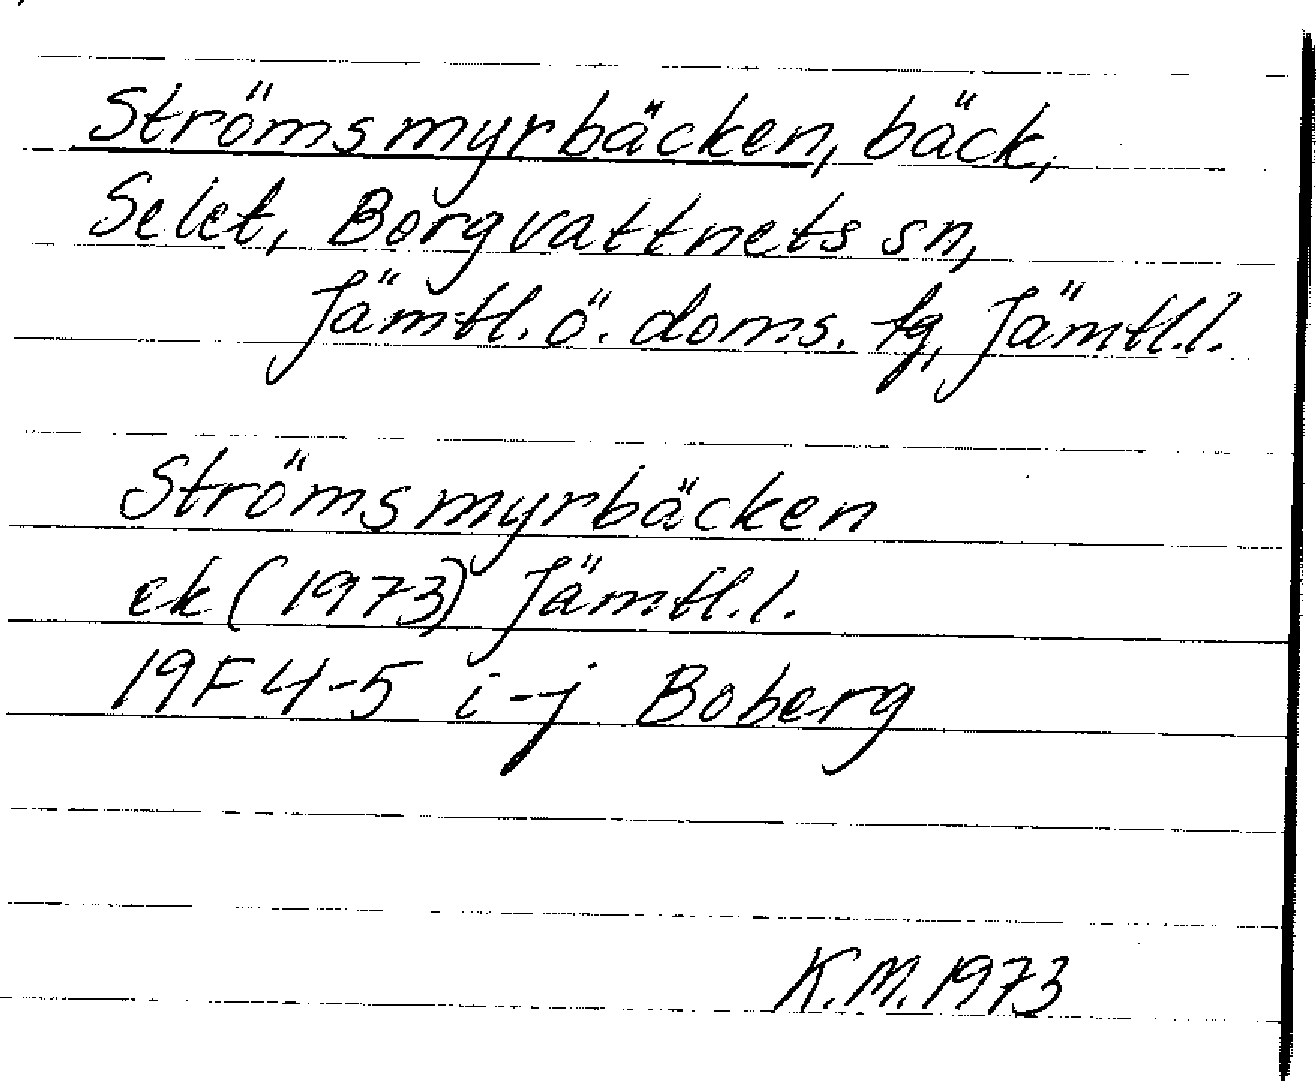 Strömsmyrbäcken, bäck,
Selet, Borgvattnets sn,
Jämtl. ö. doms. tg, Jämtl.l.
Strömsmyrbäcken
ek (1973) Jämtl.l.
19F 4-5 i-j Boberg
K.M. 1973